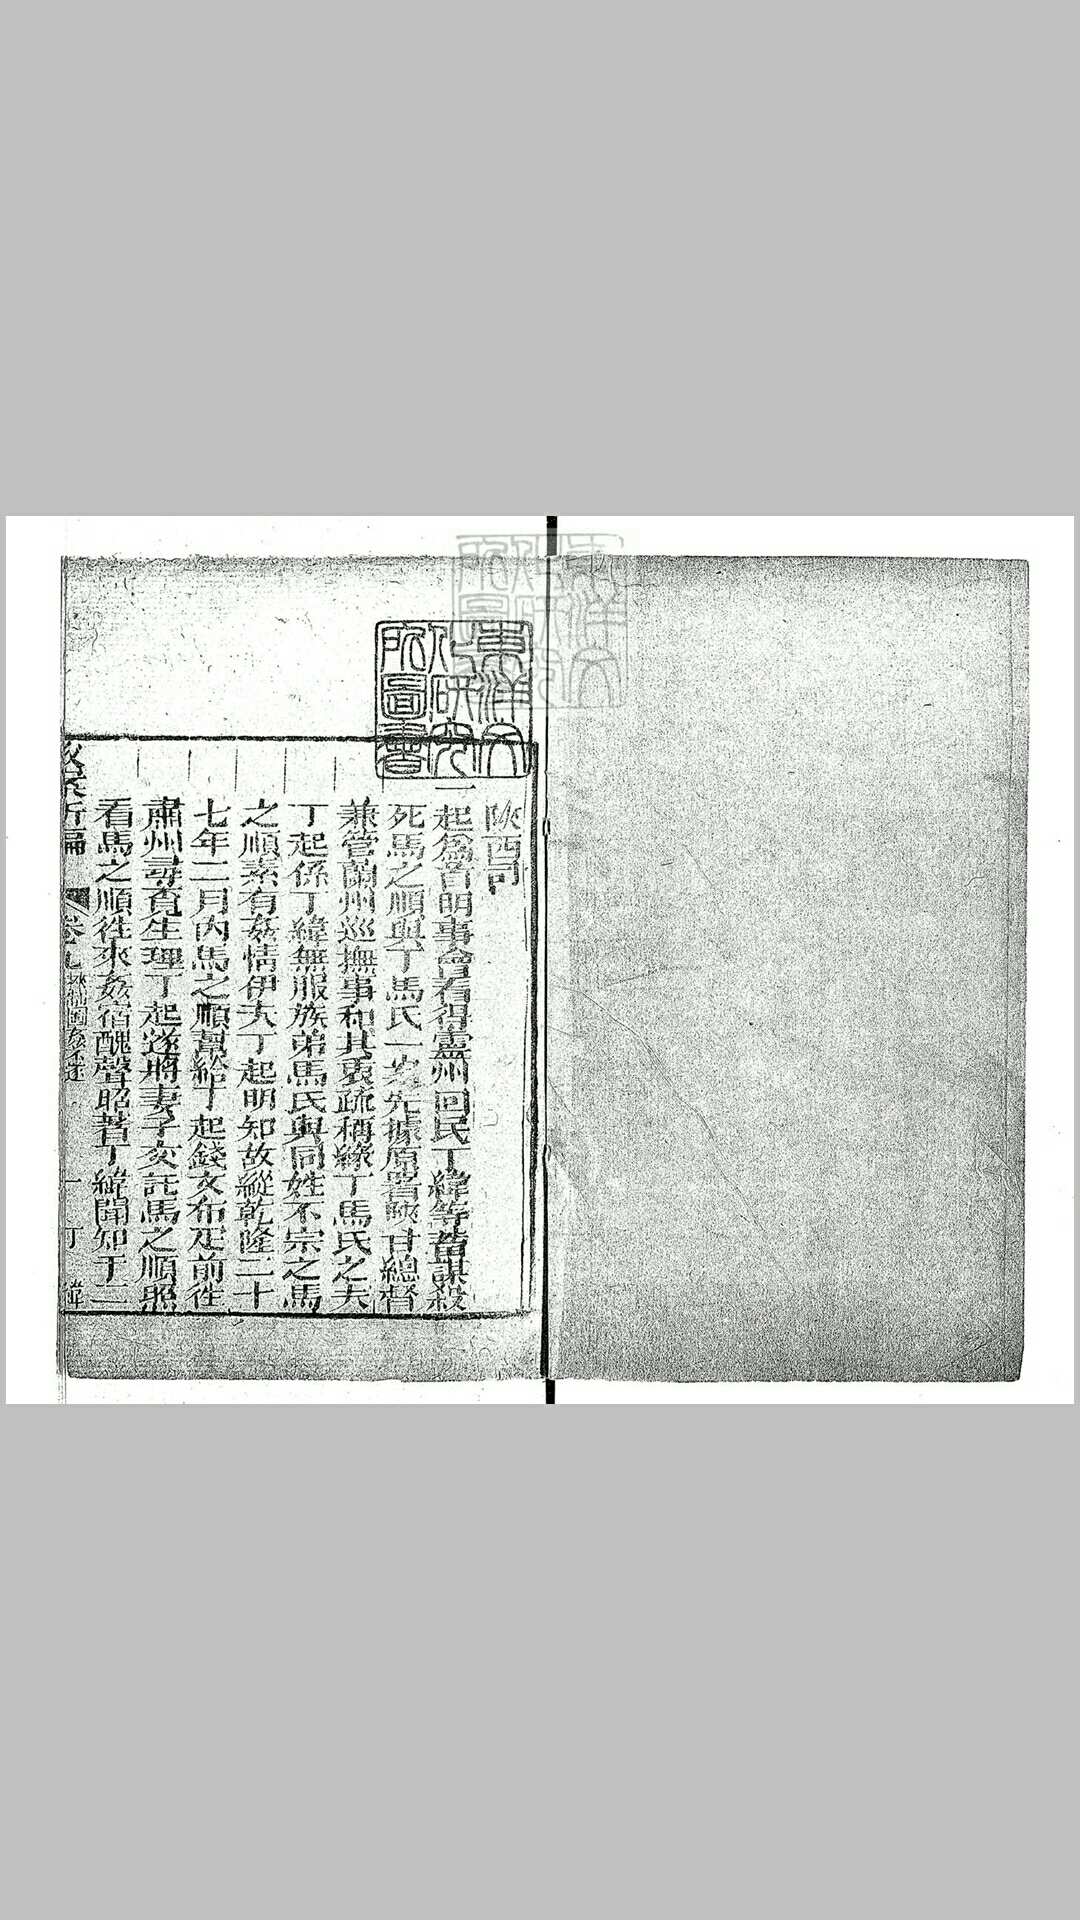 陝西司
一起爲首明事會看得靈州回民丁緯等畨謀殺
死馬之順與丁馬氏一案先據原署陝甘總督
兼管蘭州巡撫事和其衷疏稱緣丁馬氏之夫
丁起係丁緯無服族弟馬氏與同姓不宗之馬
之順素有姦情伊夫丁起明知故縱乾隆二十
七年二月內馬之順幫給丁起錢文布疋前徃
肅州尋覓生理丁起遂將妻子交託馬之順照
看馬之順徃來姦宿醜聲昭著丁緯聞知于二
新編 卷九 一 丁緯
東洋文化研究所圖書